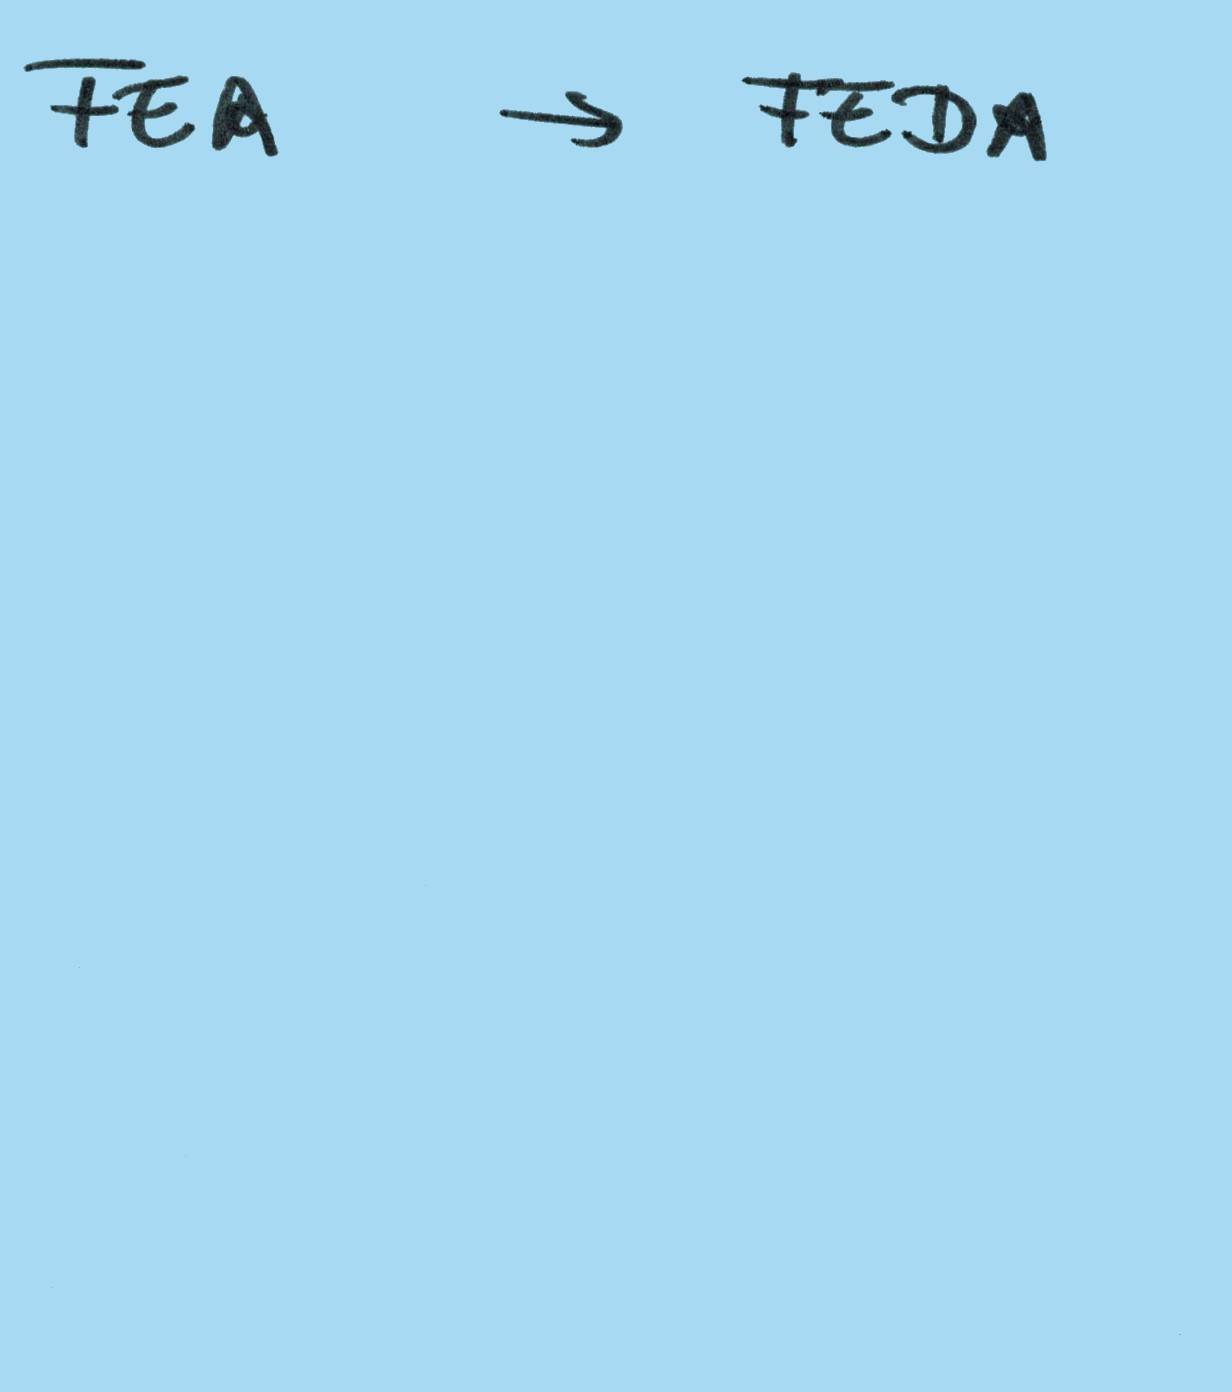 FEA → FEDA